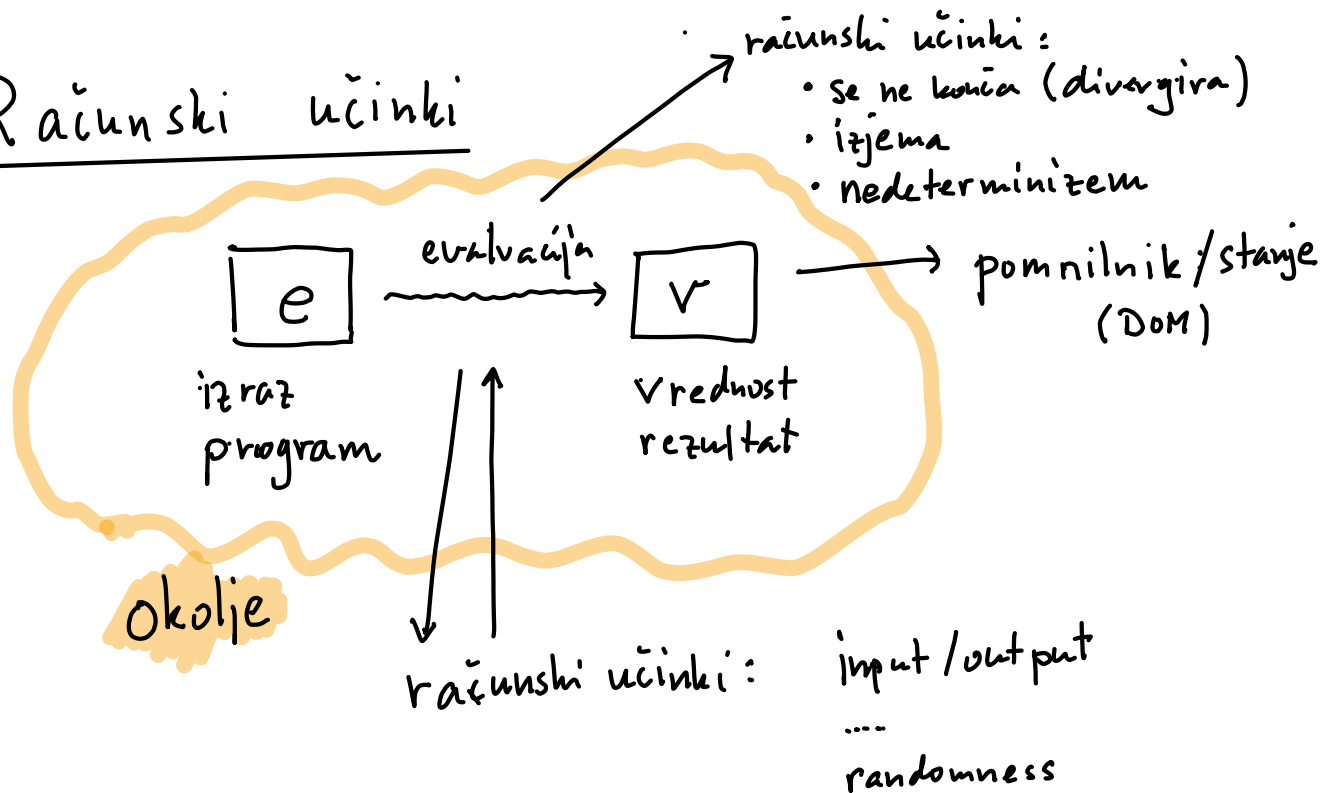 Računski učinki
računski učinki:
• se ne konča (divergira)
• izjema
• nedeterminizem
evalvacija
e
v
pomnilnik/stanje
(DOM)
izraz
program
vrednost
rezultat
okolje
računski učinki: input/output
....
randomness